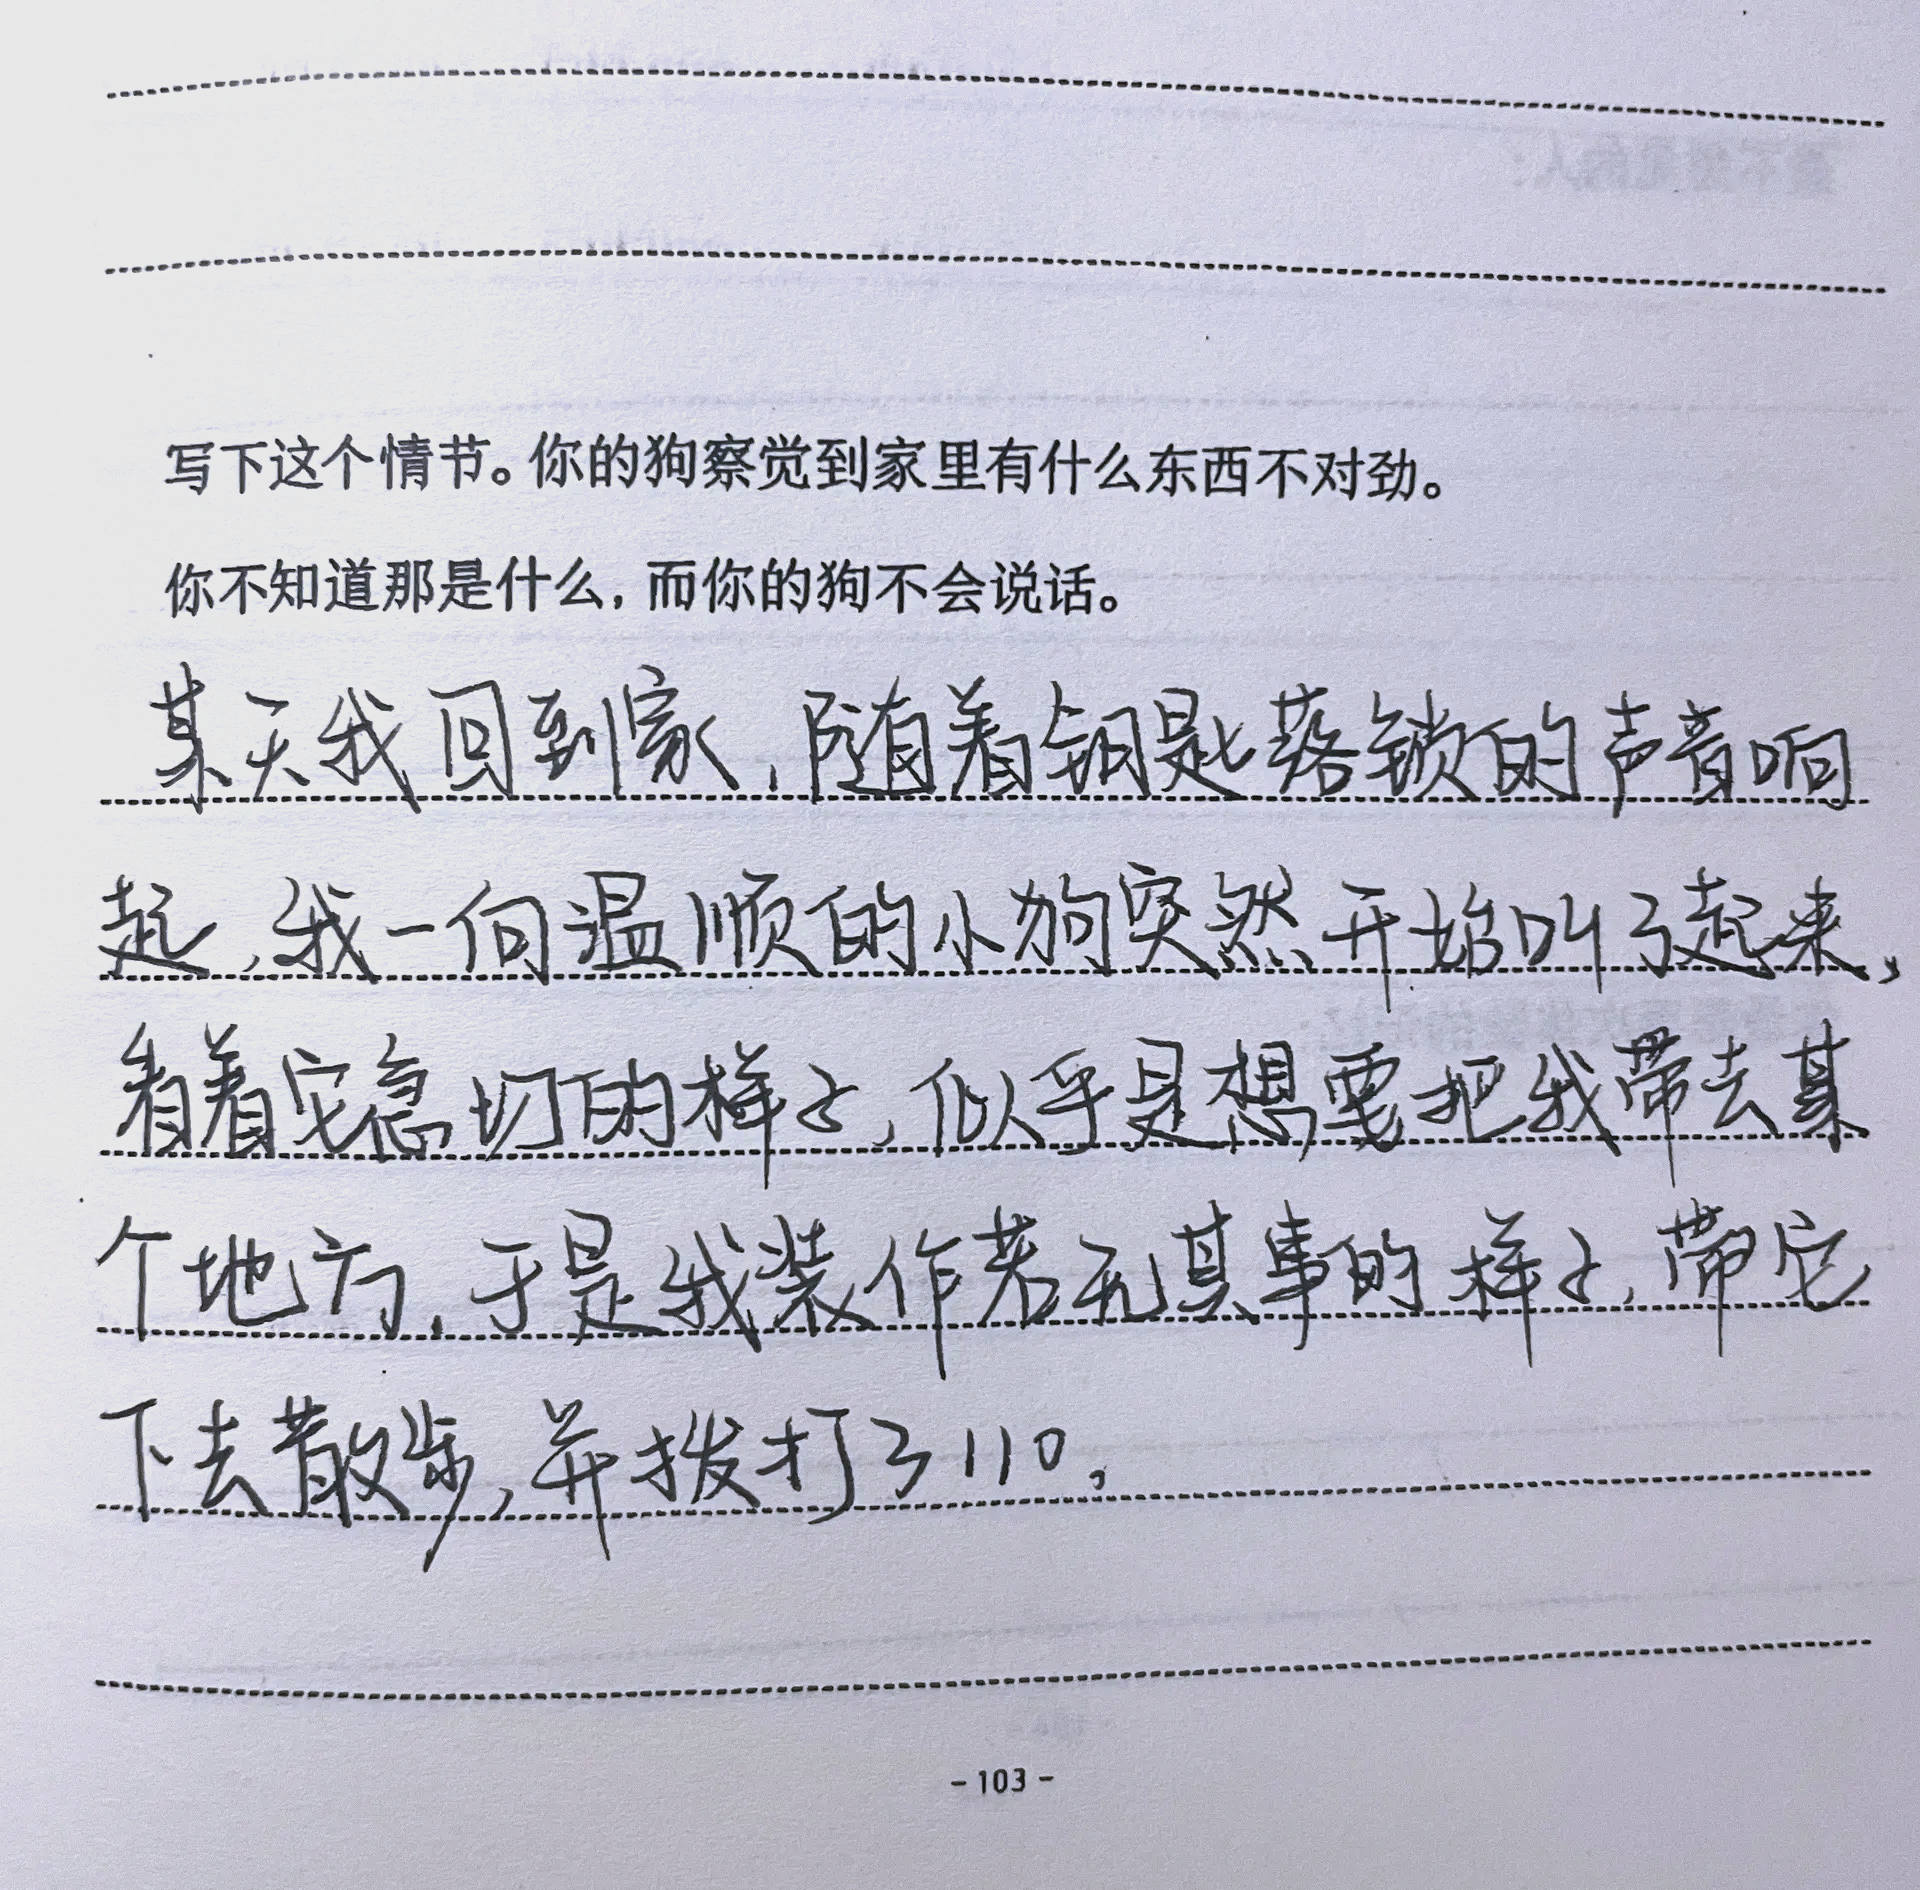 写下这个情节。你的狗察觉到家里有什么东西不对劲。
你不知道那是什么，而你的狗不会说话。
某天我回到家，随着钥匙落锁的声音响
起，我一向温顺的小狗突然开始叫了起来，
看着它急切的样子，似乎是想要把我带去某
个地方，于是我装作若无其事的样子，带它
下去散步，并拨打了110。
- 103 -